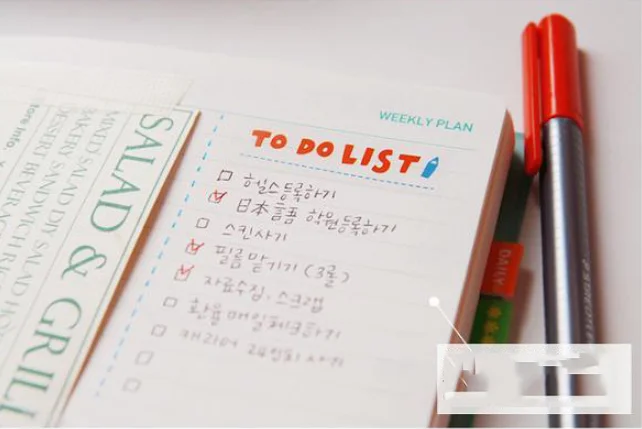 WEEKLY PLAN
TO DO LIST
헬스등록하기
日本言語 학원등록하기
스킨사기
필름맡기기 (3롤)
자료수집, 스크랩
환율매일체크하기
캐리어 24인치 사기
SALAD & GRILL
MINI'S SALAD DIY SALAD
BAKERY SANDWICH
DESSERT BEVERAG
tore info
DAILY